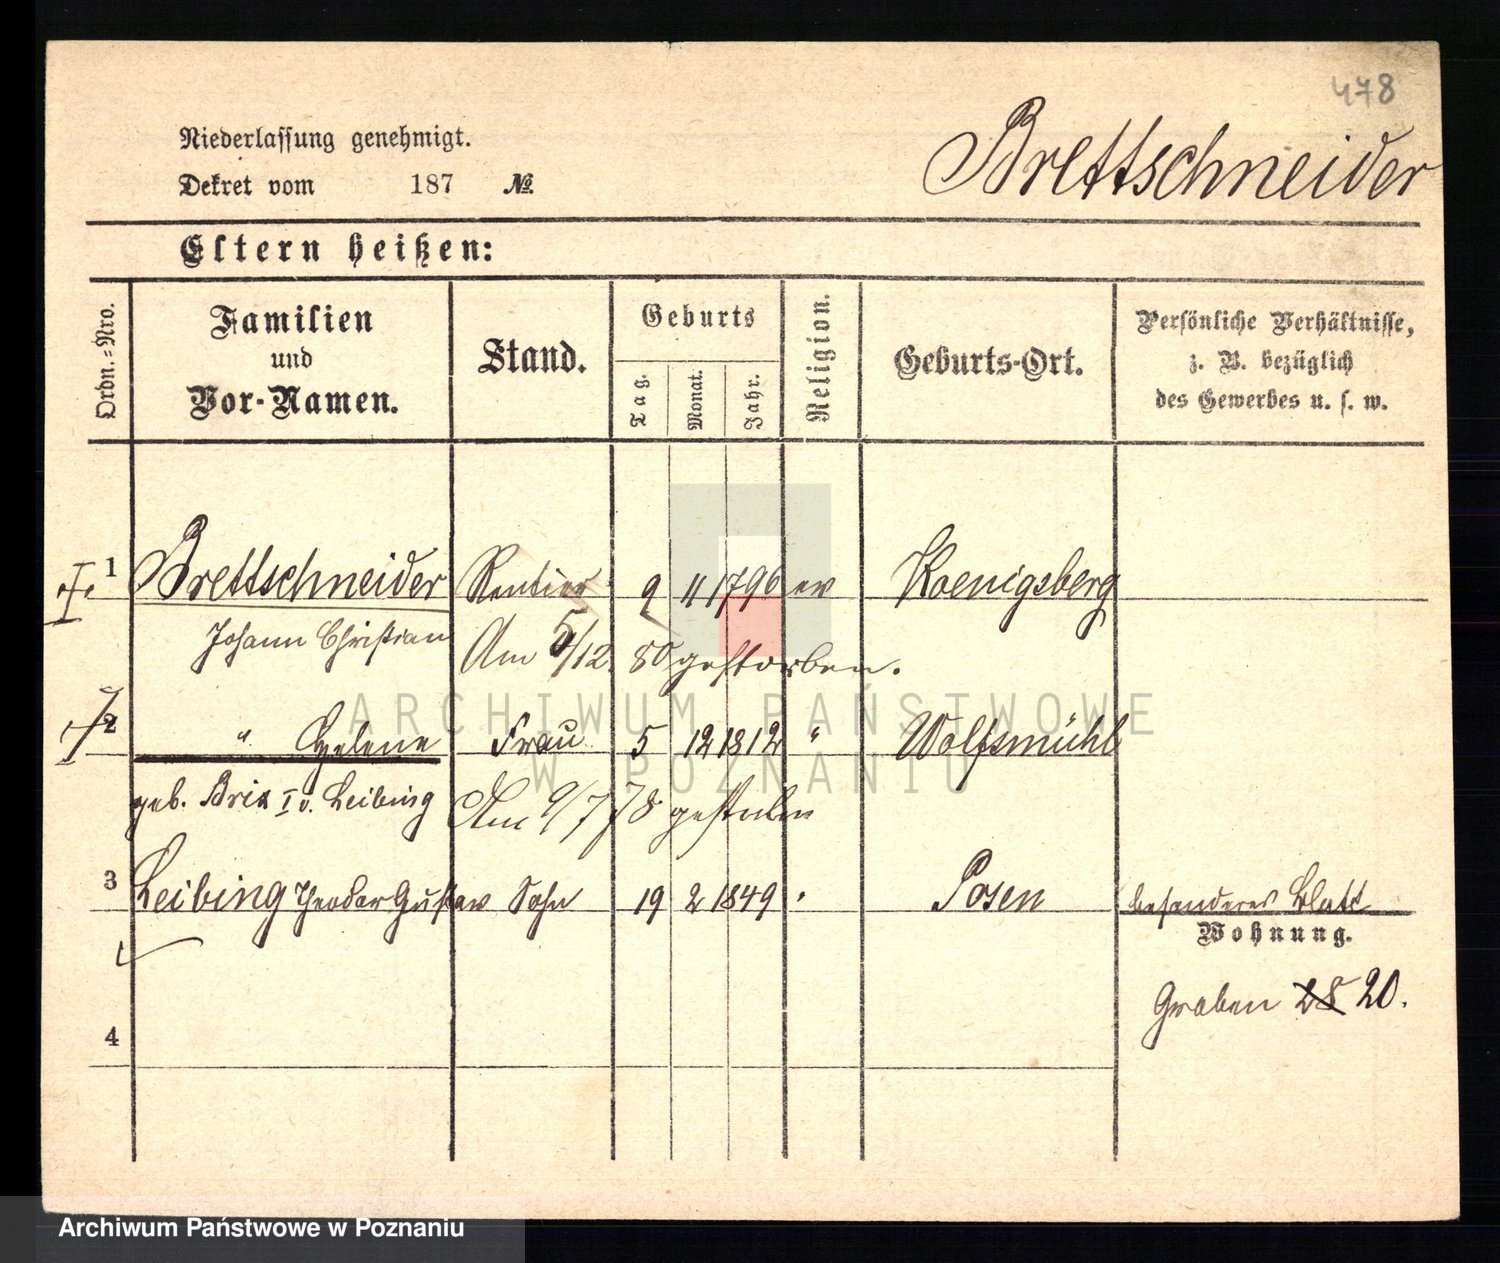 478
Niederlassung genehmigt.
Brettschneider
Dekret vom 187 №
Eltern heißen:
Ordn.-Nro.
Familien
und
Vor-Namen.
Stand.
Geburts
Tag.
Monat.
Jahr.
Religion.
Geburts-Ort.
Persönliche Verhältnisse,
z. B. bezüglich
des Gewerbes u. s. w.
1 Brettschneider Rentier 9 11 1796 ev Koenigsberg
Johann Christian Am 5/12. 80 gestorben.
2 " Helene Frau 5 12 1812 " Wolfsmühl
geb. Brix I v. Leibing Am 9/7 78 gestorben
3 Leibing Theodor Gustav Sohn 19 2 1849 " Posen besonderes Blatt
Wohnung.
Graben 28 20.
4
ARCHIWUM PAŃSTWOWE
W POZNANIU
Archiwum Państwowe w Poznaniu